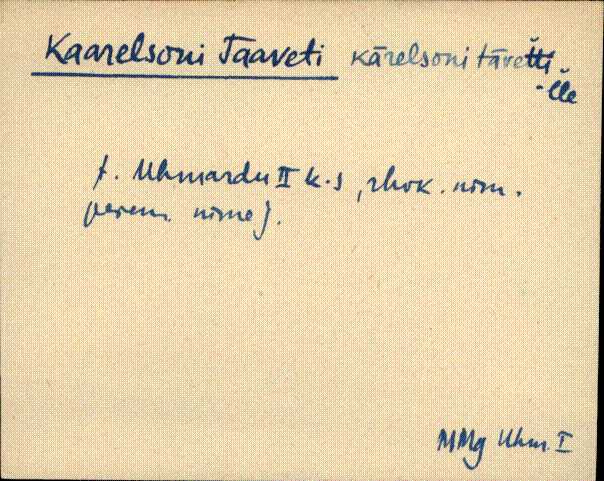 Kaarelsoni Taaveti kārelsoni tāvetti
-lle
t. Uhmardu II k.s , rhvk. nim.
perem. nime).
MMg Uhm. I